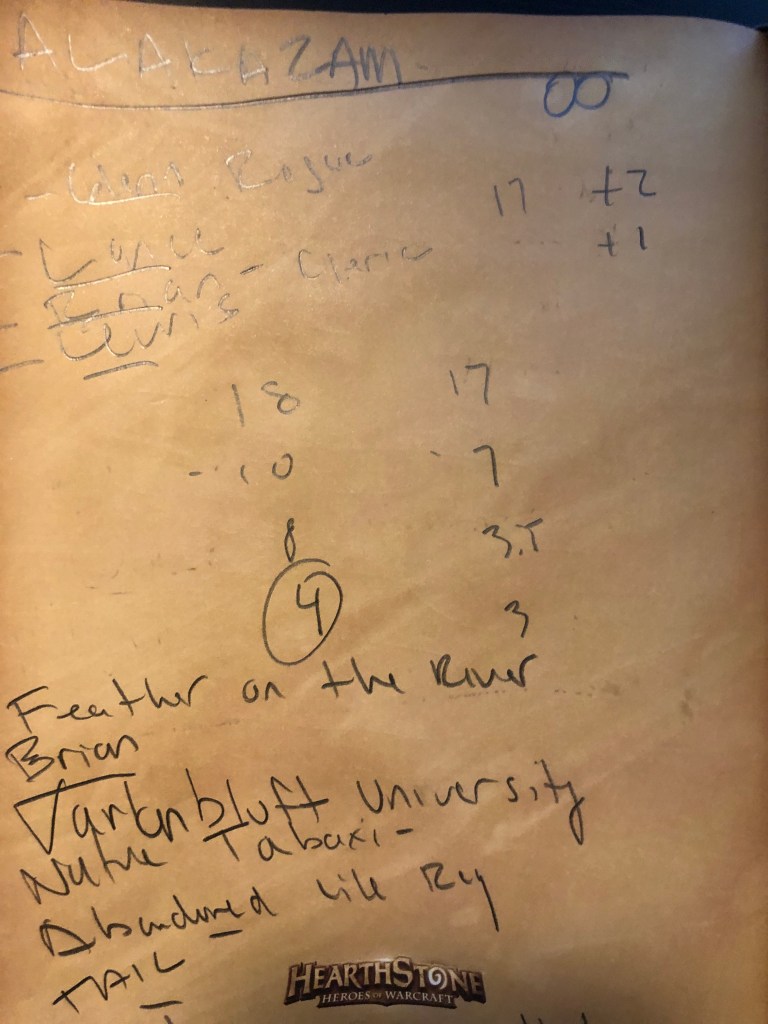 ALAKAZAM
00
- Rogue 17 +2
- Lance +1
- Brian - Cleric
-
18 17
- 10 - 7
8 3.5
4 3
Feather on the River
Brian
Tarkenbluft University
Native Tabaxi -
Abandoned like Rey
TAIL
HEARTHSTONE
HEROES OF WARCRAFT